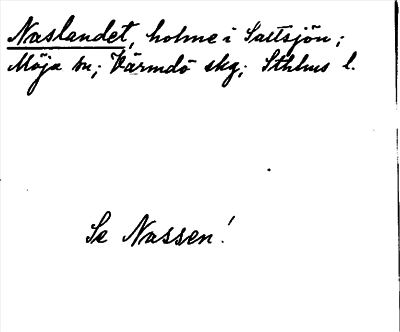 Naslandet, holme i Saltsjön;
Möja sn; Värmdö skg; Sthlms l.
Se Nassen!